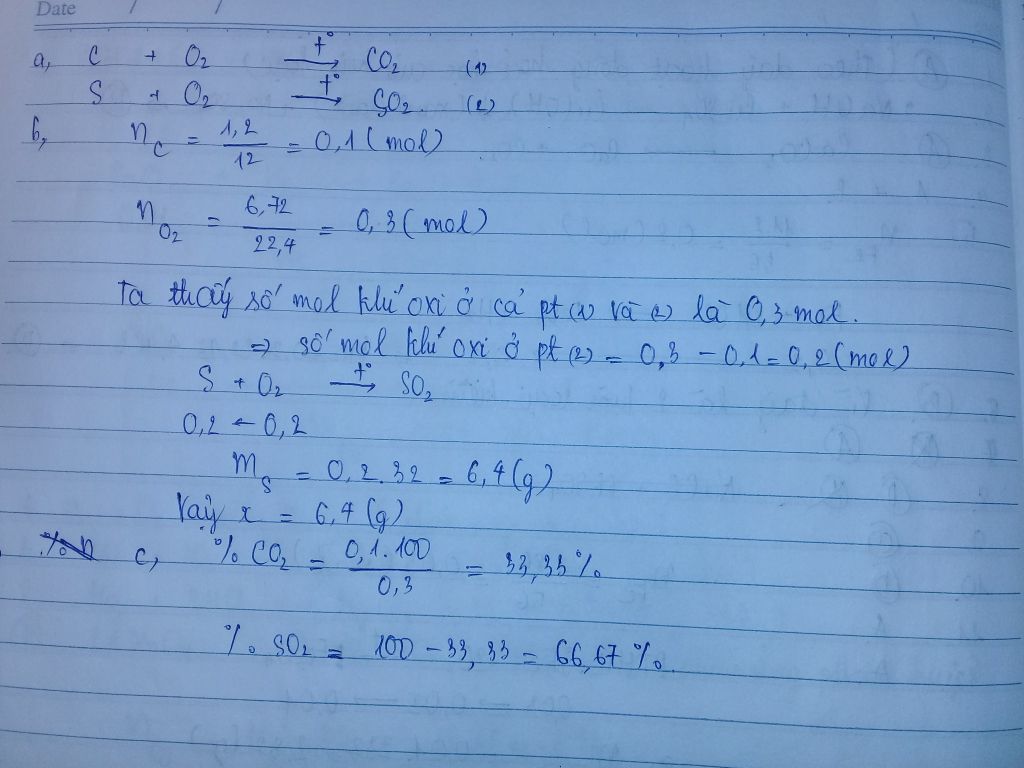 Date / /
a, C + O₂ —t°→ CO₂ (1)
S + O₂ —t°→ SO₂. (2)
b, n_C = 1,2/12 = 0,1 (mol)
n_O₂ = 6,72/22,4 = 0,3 (mol)
Ta thấy số mol khí oxi ở cả pt (1) và (2) là 0,3 mol.
⇒ số mol khí oxi ở pt (2) = 0,3 - 0,1 = 0,2 (mol)
S + O₂ —t°→ SO₂
0,2 ← 0,2
m_S = 0,2.32 = 6,4 (g)
Vậy x = 6,4 (g)
c, % CO₂ = 0,1.100/0,3 = 33,33 %
% SO₂ = 100 - 33,33 = 66,67 %.